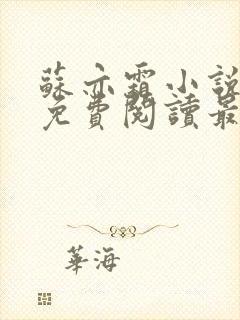 蘇亦霜小說
免費閱讀最
華海